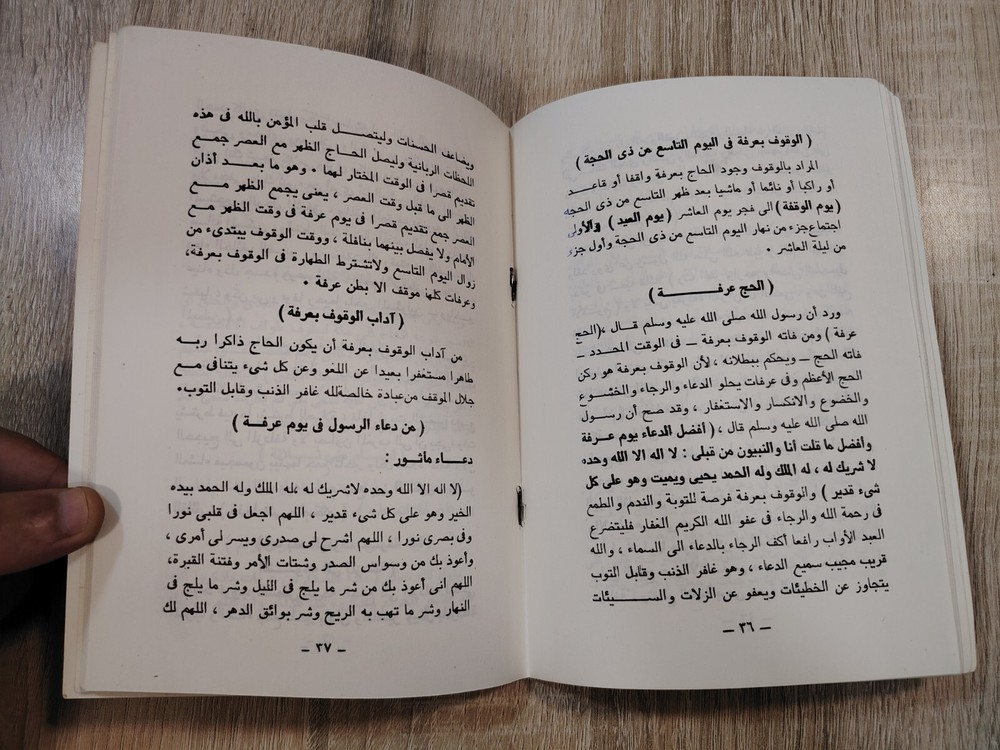 ( الوقوف بعرفة فى اليوم التاسع من ذى الحجة )
المراد بالوقوف وجود الحاج بعرفة واقفا أو قاعد
أو راكبا أو نائما أو ماشيا بعد ظهر التاسع من ذى الحجة
(يوم الوقفة) الى فجر يوم العاشر (يوم العيد) والأولى
اجتماع جزء من نهار اليوم التاسع من ذى الحجة وأول جزء
من ليلة العاشر .
( الحج عرفـــــــــــة )
ورد أن رسول الله صلى الله عليه وسلم قال ،(الحج
عرفة) ومن فاته الوقوف بعرفة ــ فى الوقت المحدد ــ
فاته الحج ــ ويحكم ببطلانه ، لأن الوقوف بعرفة هو ركن
الحج الأعظم وفى عرفات يحلو الدعاء والرجاء والخشــوع
والخضوع والانكسار والاستغفار ، وقد صح أن رســول
الله صلى الله عليه وسلم قال ، (أفضل الدعاء يوم عـرفة
وأفضل ما قلت أنا والنبيون من قبلى : لا اله الا الله وحده
لا شريك له ، له الملك وله الحمد يحيى ويميت وهو على كل
شىء قدير ) والوقوف بعرفة فرصة للتوبة والندم والطمع
فى رحمة الله والرجاء فى عفو الله الكريم الغفار فليتضرع
العبد الأواب رافعا أكف الرجاء بالدعاء الى السماء ، والله
قريب مجيب سميع الدعاء ، وهو غافر الذنب وقابل التوب
يتجاوز عن الخطيئات ويعفو عن الزلات والســــــيئات
ــ ٣٦ ــ
ويضاعف الحسنات وليتصــــل قلب المؤمن بالله فى هذه
اللحظات الربانية وليصل الحــاج الظهر مع العصر جمــع
تقديم قصرا فى الوقت المختار لهما . وهو ما بعــد أذان
الظهر الى ما قبل وقت العصر ، يعنى يجمع الظهر مــع
العصر جمع تقديم قصرا فى يوم عرفة فى وقت الظهر مــع
الأمام ولا يفصل بينهما بنافلة ، ووقت الوقوف يبتدىء من
زوال اليوم التاسع ولاتشترط الطهارة فى الوقوف بعرفة،
وعرفات كلها موقف الا بطن عرفة .
( آداب الوقوف بعرفة )
من آداب الوقوف بعرفة أن يكون الحاج ذاكرا ربــه
طاهرا مستغفرا بعيدا عن اللغو وعن كل شىء يتنافى مــع
جلال الموقف من عبادة خالصة لله غافر الذنب وقابل التوب.
( من دعاء الرسول فى يوم عرفــــة )
دعــاء مأثــور :
(لا اله الا الله وحده لاشريك له ،له الملك وله الحمد بيده
الخير وهو على كل شىء قدير ، اللهم اجعل فى قلبى نورا
وفى بصرى نورا ، اللهم اشرح لى صدرى ويسر لى أمرى ،
وأعوذ بك من وسواس الصدر وشتات الأمر وفتنة القبرة،
اللهم انى أعوذ بك من شر ما يلج فى الليل وشر ما يلج فى
النهار وشر ما تهب به الريح وشر بوائق الدهر ، اللهم لك
ــ ٣٧ ــ